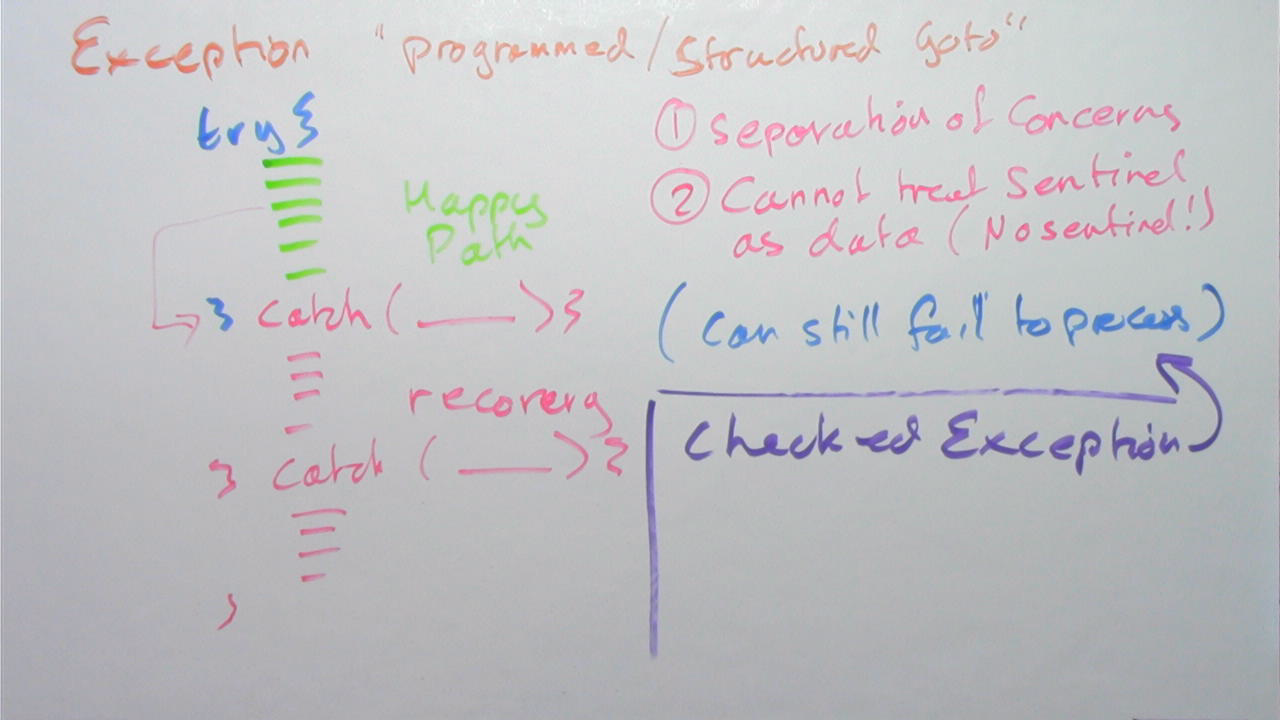 Exception "programmed/structured goto"
try {
Happy
Path
} catch ( ___ ) {
recovery
} catch ( ___ ) {
}
① Separation of Concerns
② Cannot treat Sentinel
as data (No sentinel!)
(Can still fail to process)
Checked Exception